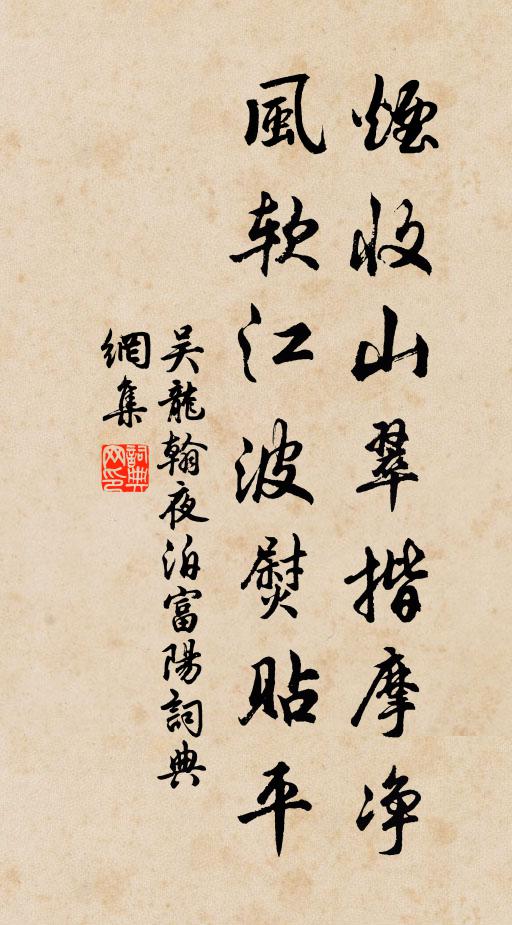 煙收山翠揩摩净
風软江波熨贴平
吴龍翰夜泊富陽詞典
網集
詞典网印